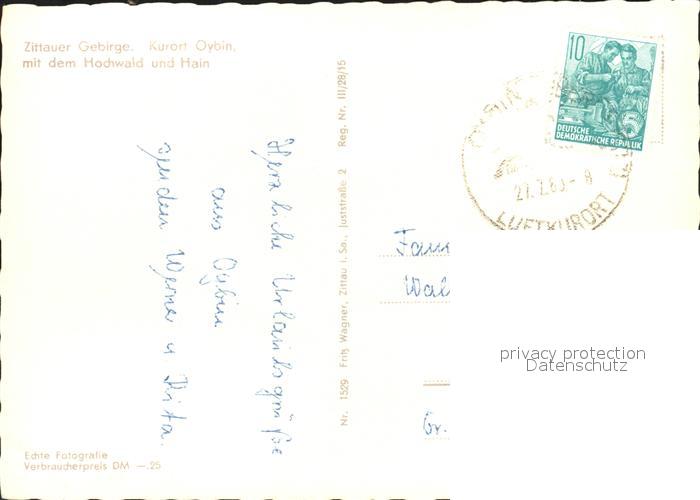 Zittauer Gebirge. Kurort Oybin,
mit dem Hochwald und Hain
Herzliche Urlaubsgrüße
aus Oybin
senden Werner u Rita.
Echte Fotografie
Verbraucherpreis DM —.25
Nr. 1529 Fritz Wagner, Zittau i. Sa., Juststraße 2 Reg. Nr. III/28/15
10
DEUTSCHE
DEMOKRATISCHE REPUBLIK
LUFTKURORT
Fam
Wal
Gr.
privacy protection
Datenschutz